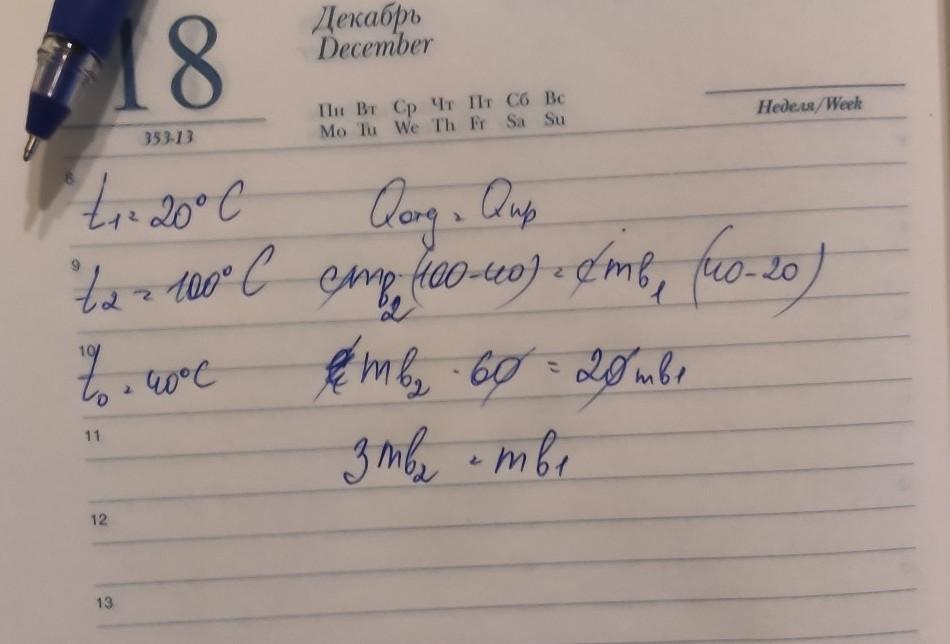 18
Декабрь
December
Пн Вт Ср Чт Пт Сб Вс
Mo Tu We Th Fr Sa Su
Неделя/Week
353-13
8
t₁ = 20°C Qотд = Qпр
9
t₂ = 100°C cmв₂(100-40) = cmв₁ (40-20)
10
t₀ = 40°C mв₂ · 60 = 20mв₁
11
3mв₂ = mв₁
12
13